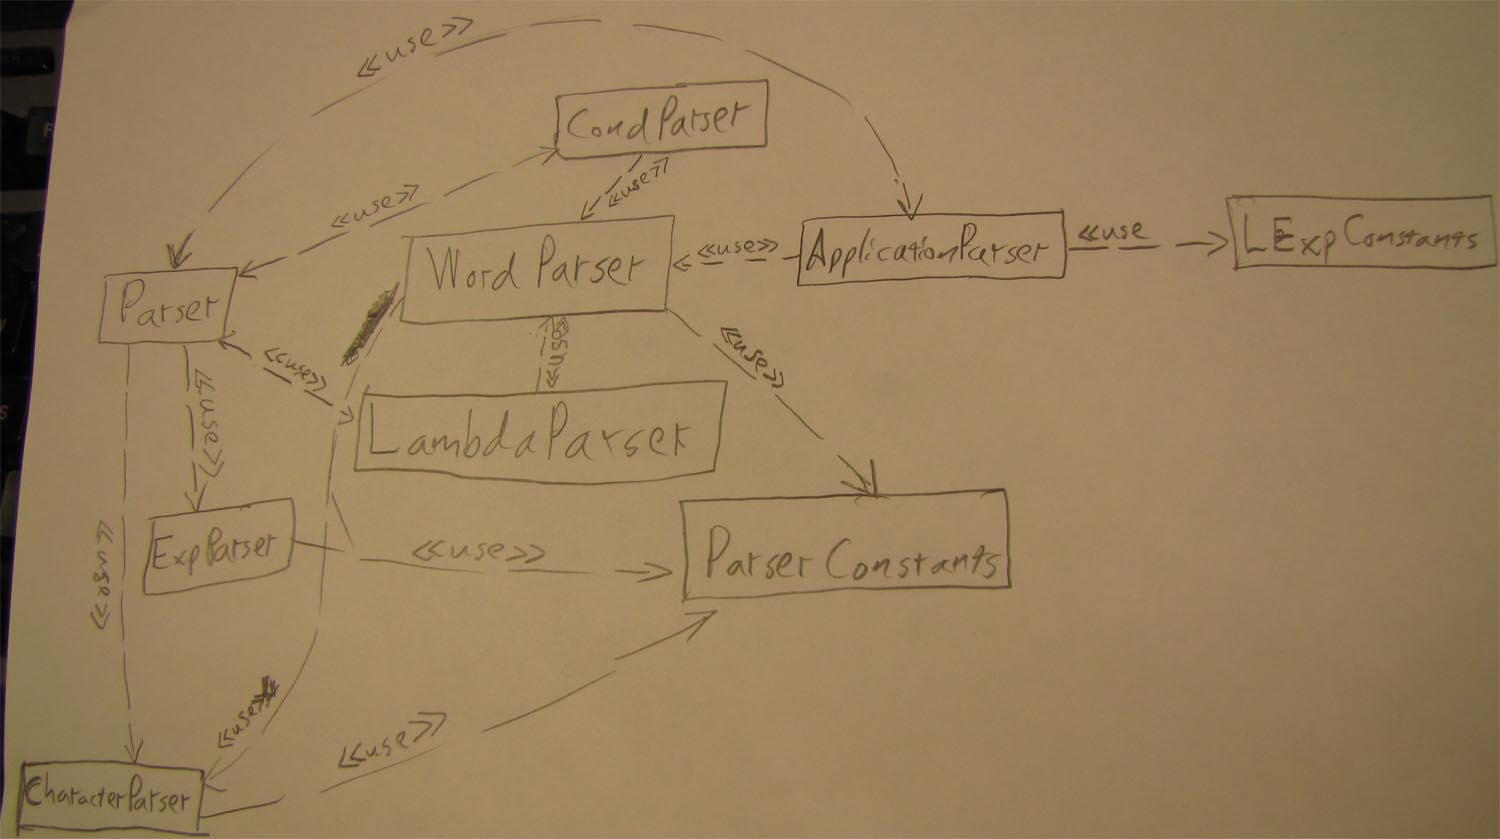 <<use>>
CondParser
<<use>>
<<use>>
Parser
WordParser
<<use>>
ApplicationParser
<<use
LExpConstants
<<use>>
<<use>>
<<use>>
<<use>>
LambdaParser
<<use>>
ExpParser
<<use>>
ParserConstants
<<use>>
<<use>>
<<use>>
CharacterParser